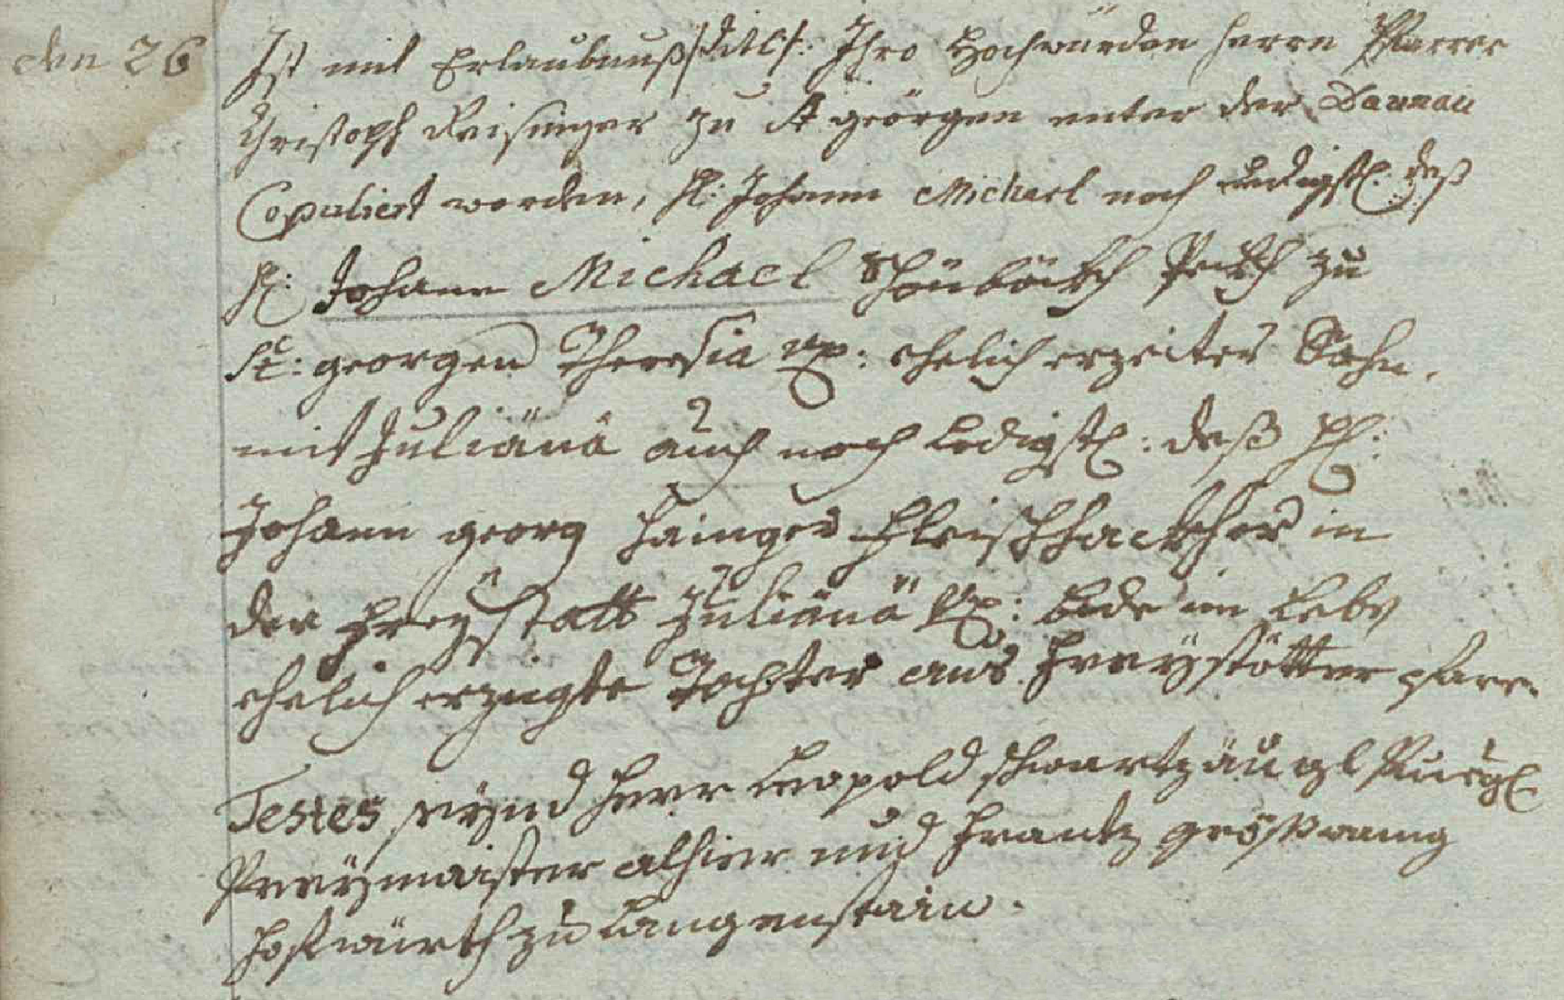 den 26
Ist mit Erlaubnuß /titl/: Ihro Hochwürden Herrn Pfarrer
Christoph Reisinger zu St georgen unter der Daunau
Copuliert worden, H: Johann Michael noch Ledigst: deß
H: Johann Michael Schönböckh Peckh zu
St: georgen Theresia ux: ehelich erzeiter Sohn,
mit Juliäna auch noch Ledigst: deß H:
Johann georg Hainger Fleischhackher in
der Freystatt Juliäna Ux: bede im Leben
ehelich erzeigte Tochter aus Freystötter pfarr.
Testes seynd Herr Leopold schwartzäugl
Preymaister alhier und Frantz
Hofwürth zu Langenstain.